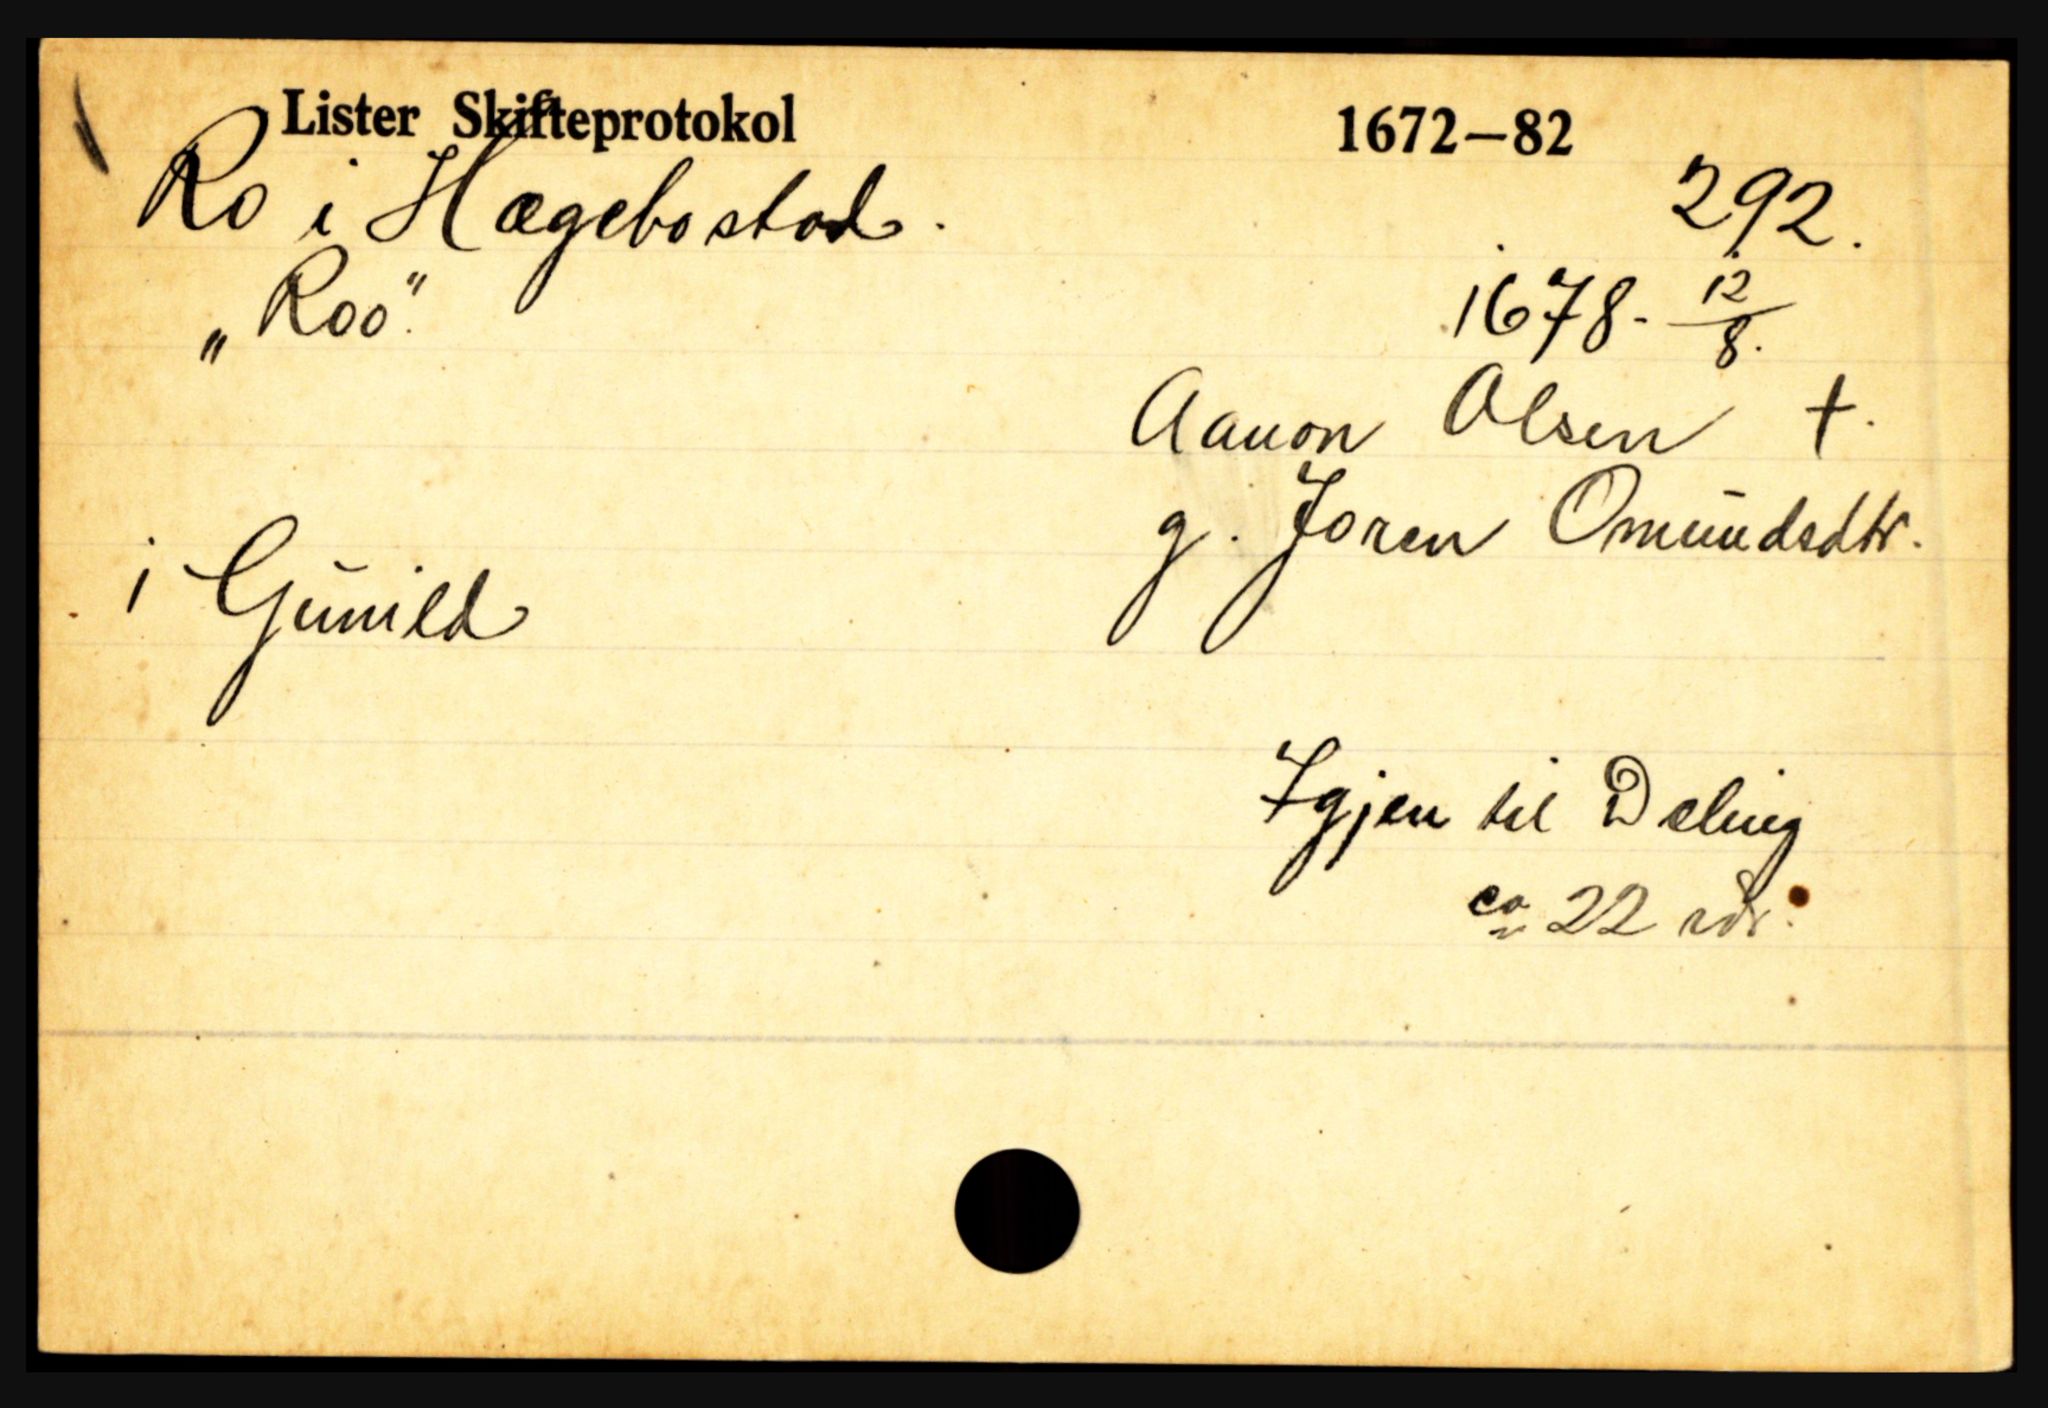 Lister Skifteprotokol 1672–82
Ro i Hægebostad. 292.
„Roo“. 1678 - 12/8.
Aanon Olsen †.
g. Joren Omundsdtr.
1 Gunild
Igjen til Deling
ca 22 rdr.